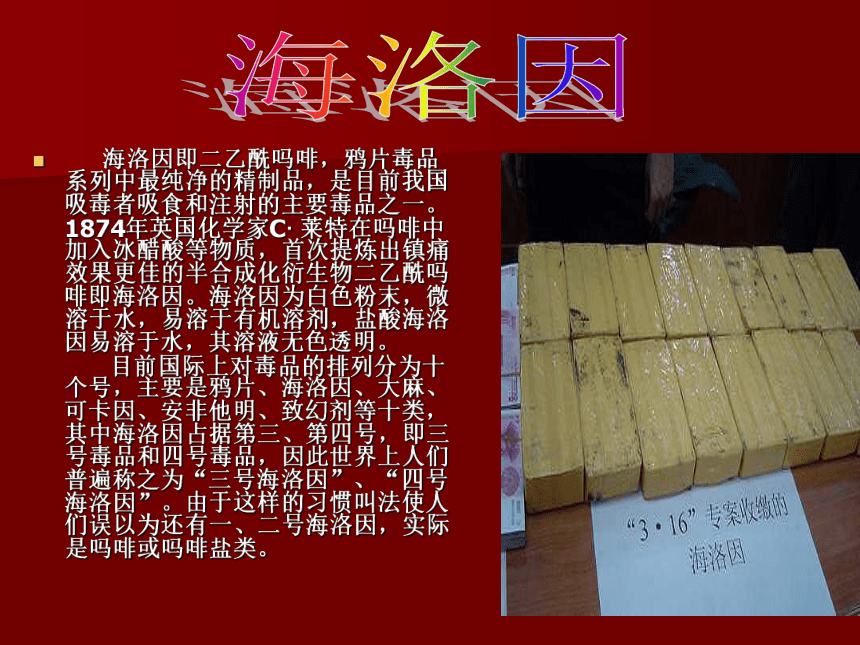 海洛因
海洛因即二乙酰吗啡，鸦片毒品
系列中最纯净的精制品，是目前我国
吸毒者吸食和注射的主要毒品之一。
1874年英国化学家C·莱特在吗啡中
加入冰醋酸等物质，首次提炼出镇痛
效果更佳的半合成化衍生物二乙酰吗
啡即海洛因。海洛因为白色粉末，微
溶于水，易溶于有机溶剂，盐酸海洛
因易溶于水，其溶液无色透明。
目前国际上对毒品的排列分为十
个号，主要是鸦片、海洛因、大麻、
可卡因、安非他明、致幻剂等十类，
其中海洛因占据第三、第四号，即三
号毒品和四号毒品，因此世界上人们
普遍称之为“三号海洛因”、“四号
海洛因”。由于这样的习惯叫法使人
们误以为还有一、二号海洛因，实际
是吗啡或吗啡盐类。
“3·16”专案收缴的
海洛因